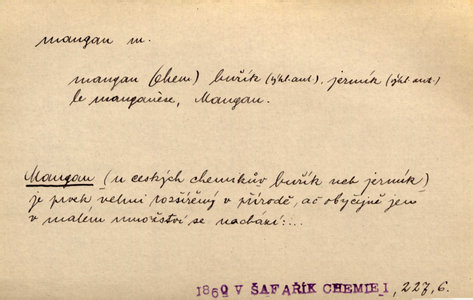 mangan m.
mangan (chem) buřík (zkt. aut.), jermík (zkt aut)
le manganèse, Mangan.
Mangan (u českých chemikův buřík neb jermík)
je prvek velmi rozšířený v přírodě, ač obyčejně jen
v malém množství se nachází:...
1860 V ŠAFAŘÍK CHEMIE I, 227, 6.